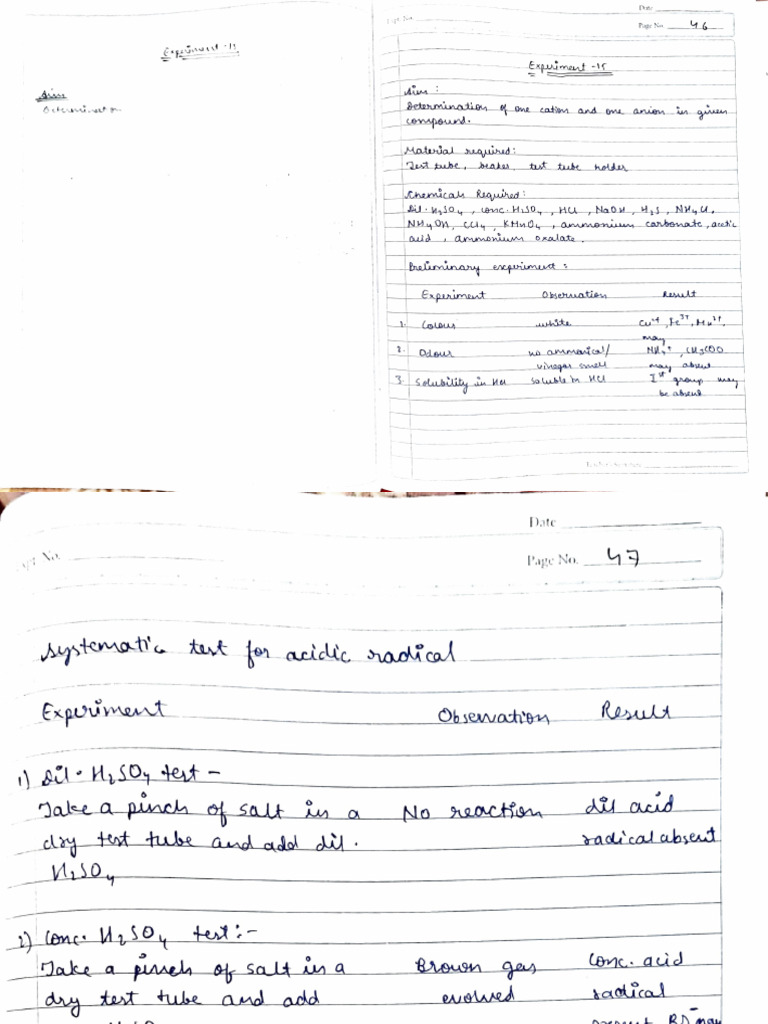 Experiment -15
Aim
Determination
Date
Expt. No.
Page No. 46
Experiment -15
Aim :
Determination of one cation and one anion in given
compound.
Material required:
Test tube, beaker, test tube holder
Chemicals Required:
Dil. H2SO4, conc. H2SO4, HCl, NaOH, H2S, NH4Cl,
NH4OH, CCl4, KMnO4, ammonium carbonate, acetic
acid, ammonium oxalate.
Preliminary experiment :
Experiment Observation Result
1. Colour white Cu2+, Fe3+, Mn2+,
may
2. Odour no ammonical/ NH4+, CH3COO
vinegar smell may absent
3. Solubility in HCl soluble in HCl Ist group may
be absent
Date
Expt. No.
Page No. 47
Systematic test for acidic radical
Experiment Observation Result
1) Dil. H2SO4 test -
Take a pinch of salt in a No reaction dil acid
dry test tube and add dil. radical absent
H2SO4
2) Conc. H2SO4 test:-
Take a pinch of salt in a Brown gas Conc. acid
dry test tube and add evolved radical